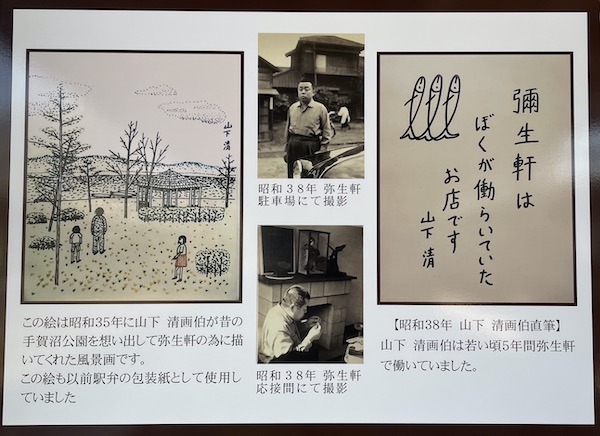 山下 清
この絵は昭和35年に山下 清画伯が昔の
手賀沼公園を想い出して弥生軒の為に描
いてくれた風景画です。
この絵も以前駅弁の包装紙として使用し
ていました
昭和38年 弥生軒
駐車場にて撮影
昭和38年 弥生軒
応接間にて撮影
彌生軒は
ぼくが働らいていた
お店です
山下 清
【昭和38年 山下 清画伯直筆】
山下 清画伯は若い頃5年間弥生軒
で働いていました。